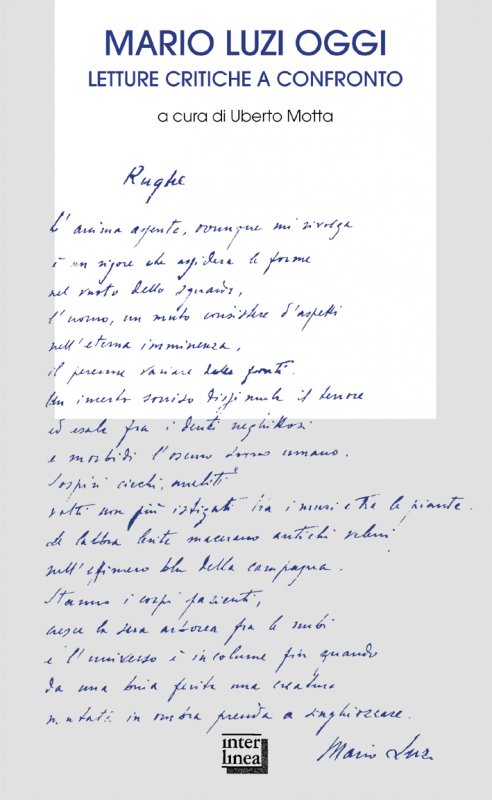 MARIO LUZI OGGI
LETTURE CRITICHE A CONFRONTO
a cura di Uberto Motta
Rughe
L'anima assente, ovunque mi rivolga
è un rigore che assidera le forme
nel vuoto dello sguardo,
l'uomo, un muto consistere d'aspetti
nell'eterna imminenza,
il perenne variare delle fronti.
Un incerto sorriso dissimula il terrore
ed esala fra i denti neghittosi
e morbidi l'oscuro umano.
Sospiri ciechi, aneliti
volti non più istigati tra i muri e tra le piante.
Le labbra lente macerano antichi veleni
nell'effimero blu della campagna.
Stanno i corpi pazienti,
cresce la sera arborea fra le nubi
e l'universo è incolume fin quando
da una buia ferita una creatura
mutata in ombra prenda a singhiozzare.
Mario Luzi
inter
linea